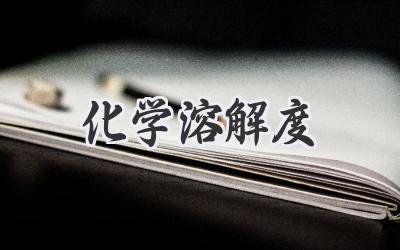 化学溶解度